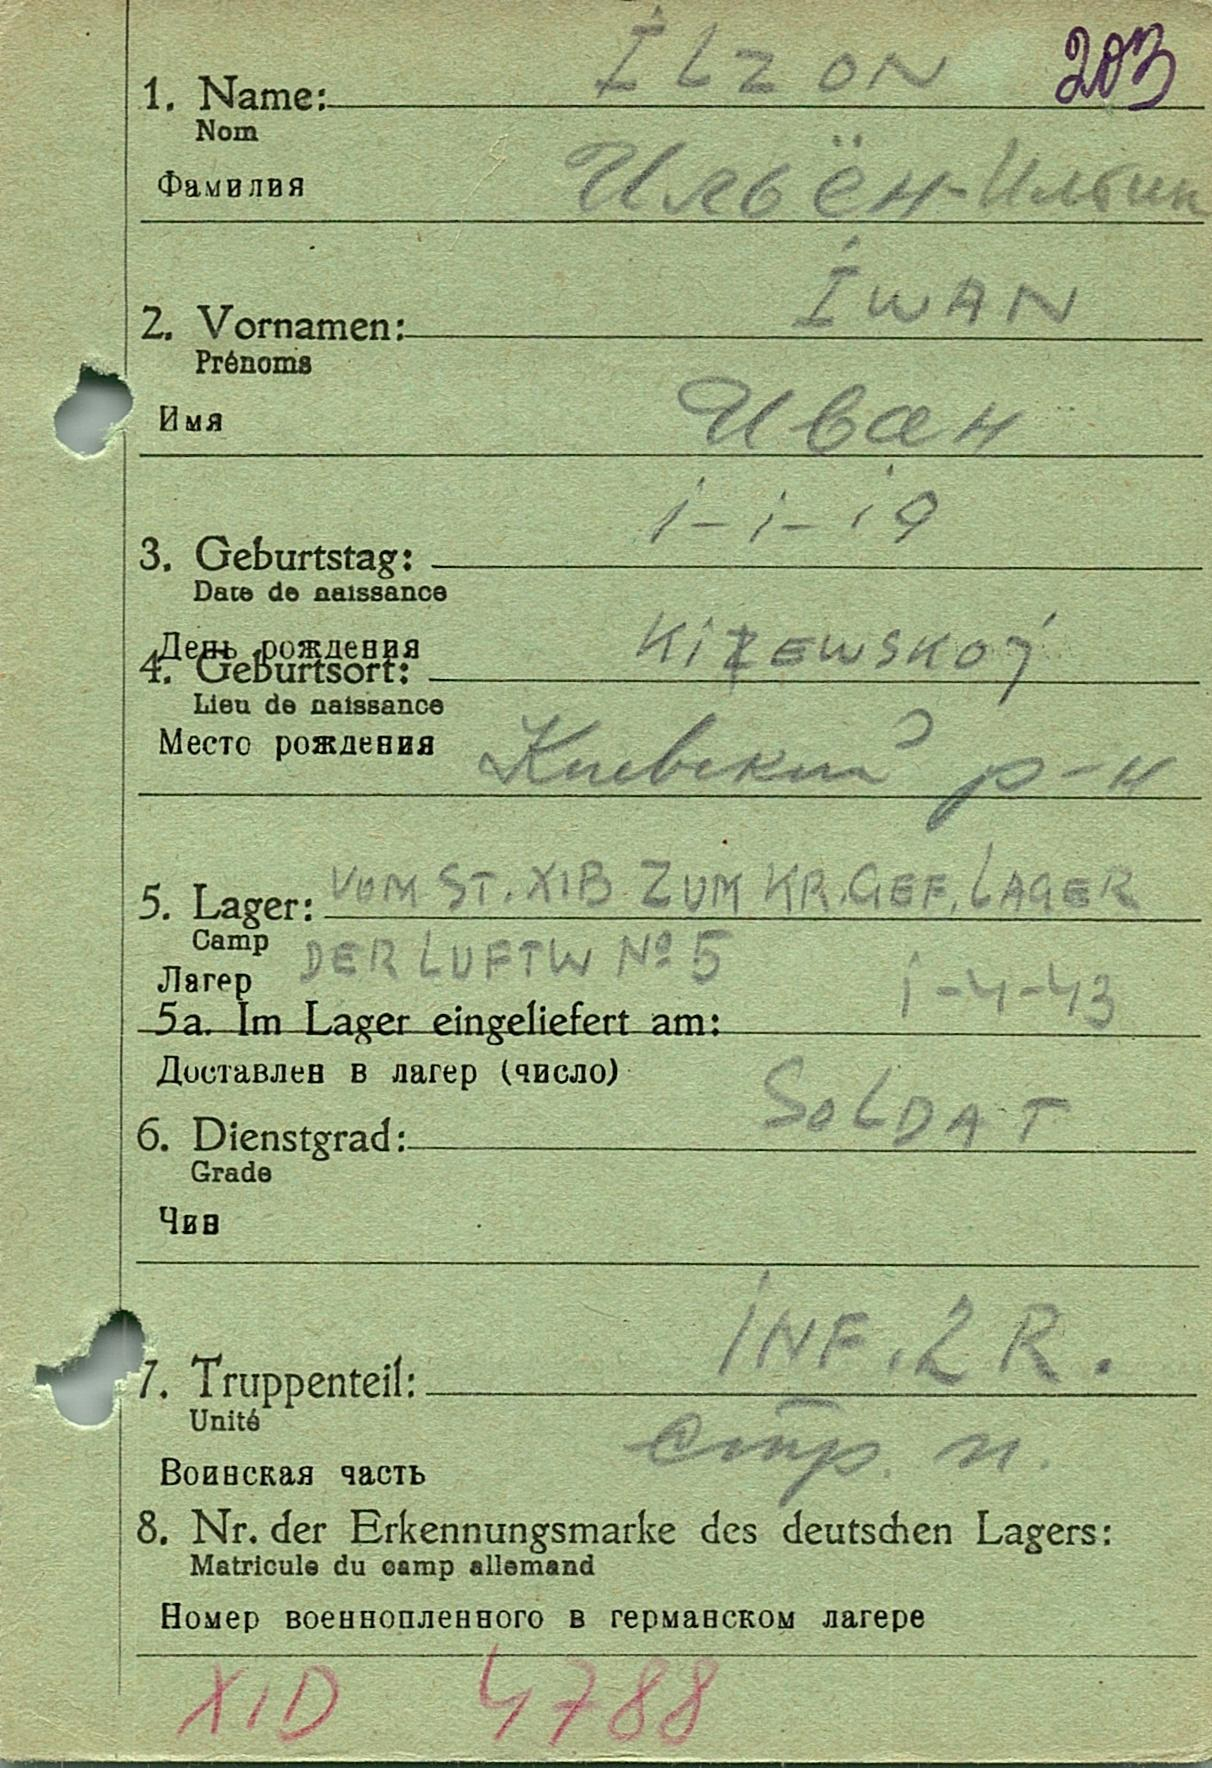 1. Name: ILZON 203
Nom
Фамилия Ильён-Ильин
2. Vornamen: IWAN
Prénoms
Имя Иван
3. Geburtstag: 1-1-19
Date de naissance
День рождения
4. Geburtsort: KIZEWSKOJ
Lieu de naissance
Место рождения Киевский р-н
5. Lager: VOM ST. XIB ZUM KR.GEF. LAGER
Camp
Лагер DER LUFTW No 5
5a. Im Lager eingeliefert am: 1-4-43
Доставлен в лагер (число)
6. Dienstgrad: SOLDAT
Grade
Чин
7. Truppenteil: INF. 2 R.
Unité
Воинская часть стр. п.
8. Nr. der Erkennungsmarke des deutschen Lagers:
Matricule du camp allemand
Номер военнопленного в германском лагере
XID 4788